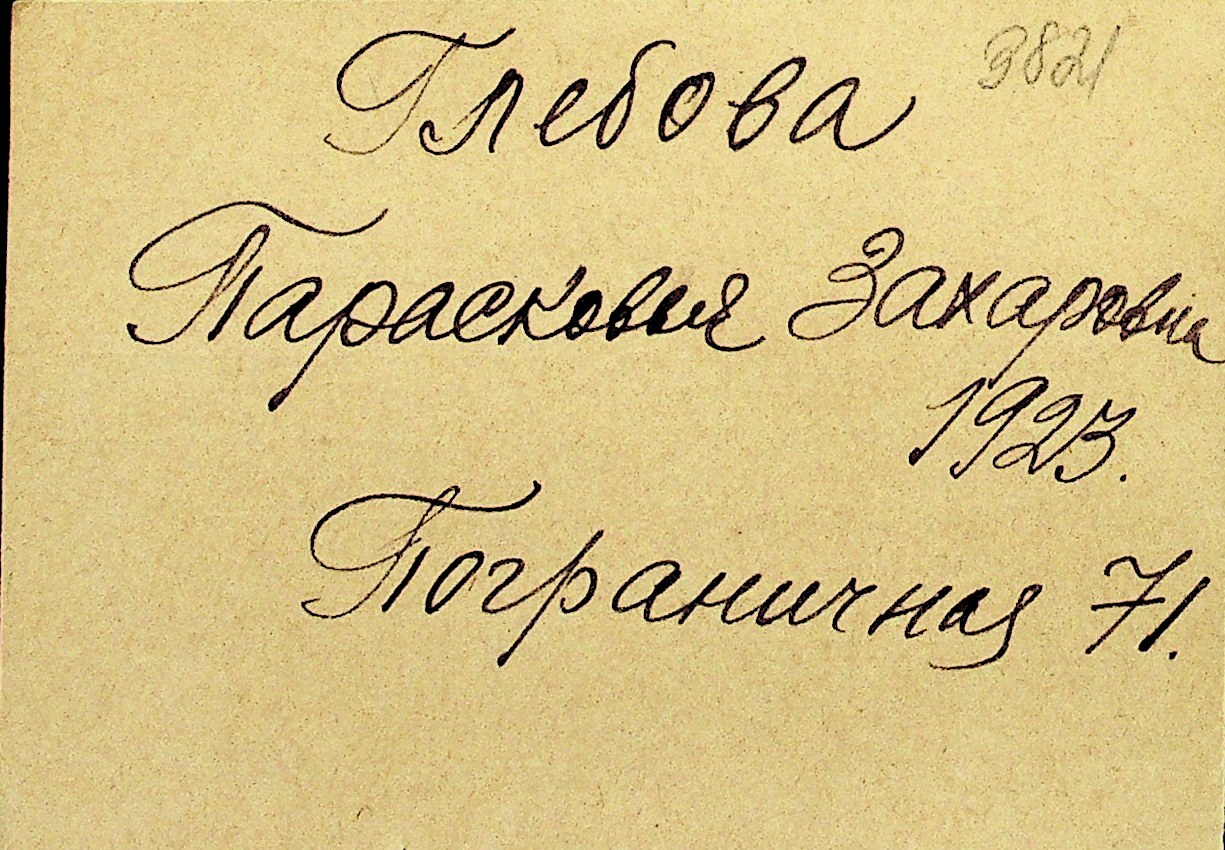 Глебова 3821
Парасковья Захаровна
1923.
Пограничная 71.